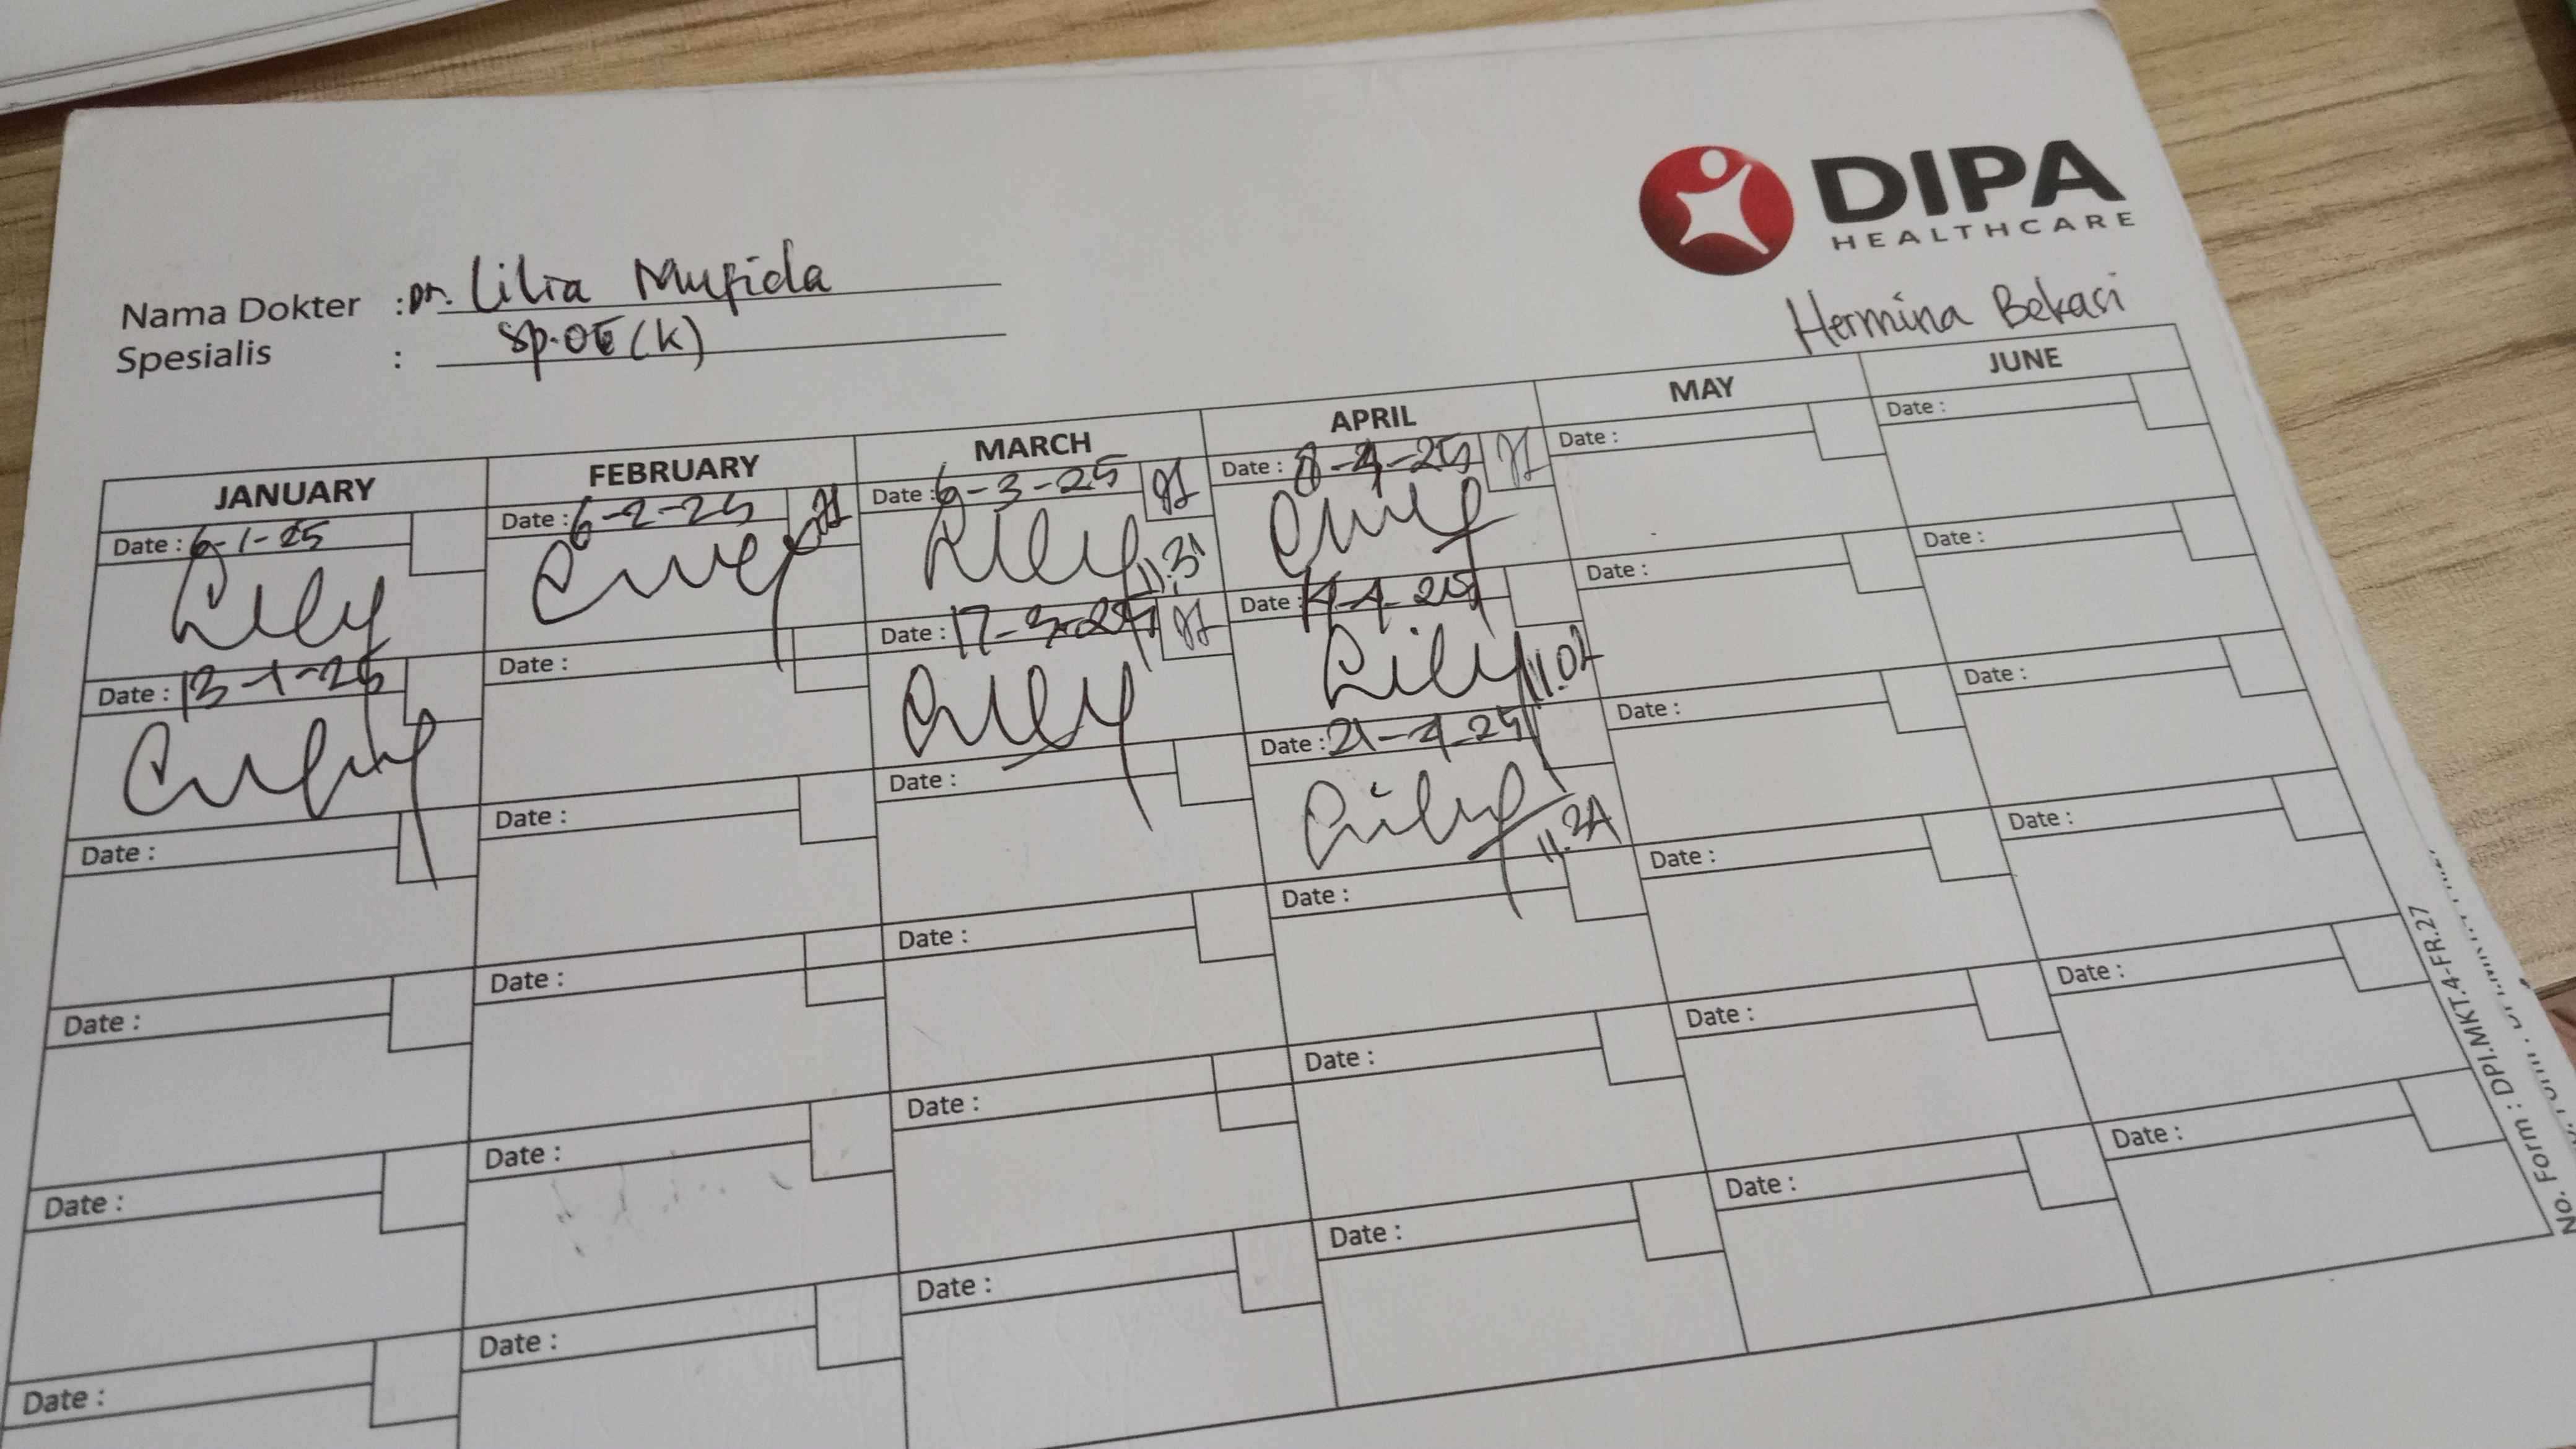 DIPA
HEALTHCARE
Nama Dokter : Dr. Lilia Mufida
Spesialis : Sp.OG (K)
Hermina Bekasi
JANUARY FEBRUARY MARCH APRIL MAY JUNE
Date : 6-1-25 Date : 6-2-25 Date : 6-3-25 Date : 8-4-25 Date : Date :
11.31
Date : 13-1-25 Date : Date : 17-3-25 Date : 14-4-25 Date : Date :
Date : Date : Date : Date : 21-4-25 Date : Date :
Date : Date : Date : Date : Date : Date :
Date : Date : Date : Date : Date : Date :
Date : Date : Date : Date : Date : Date :
No. Form : DPI.MKT.4-FR.27